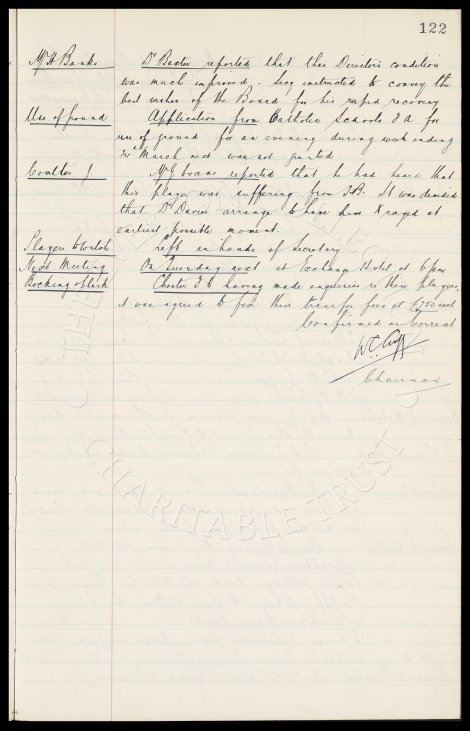 122
Mr H Banks Dr Baxter reported that this Director's condition
was much improved. Secy instructed to convey the
best wishes of the Board for his rapid recovery
Use of ground Application from Catholic Schools F A for
use of ground for an evening during week ending
March next was not granted.
Coulter J. Mr G Evans reported that he had heard that
this player was suffering from T.B. It was decided
that Dr Davies arrange to have him X rayed at
earliest possible moment.
Players to watch Left in hands of Secretary
Next Meeting On Tuesday next at Exchange Hotel at 6 pm
Chester F C having made enquiries re these players,
it was agreed to fix their transfer fees at £750 each
Confirmed as Correct
W.C. Cuff
Chairman
CHARITABLE TRUST